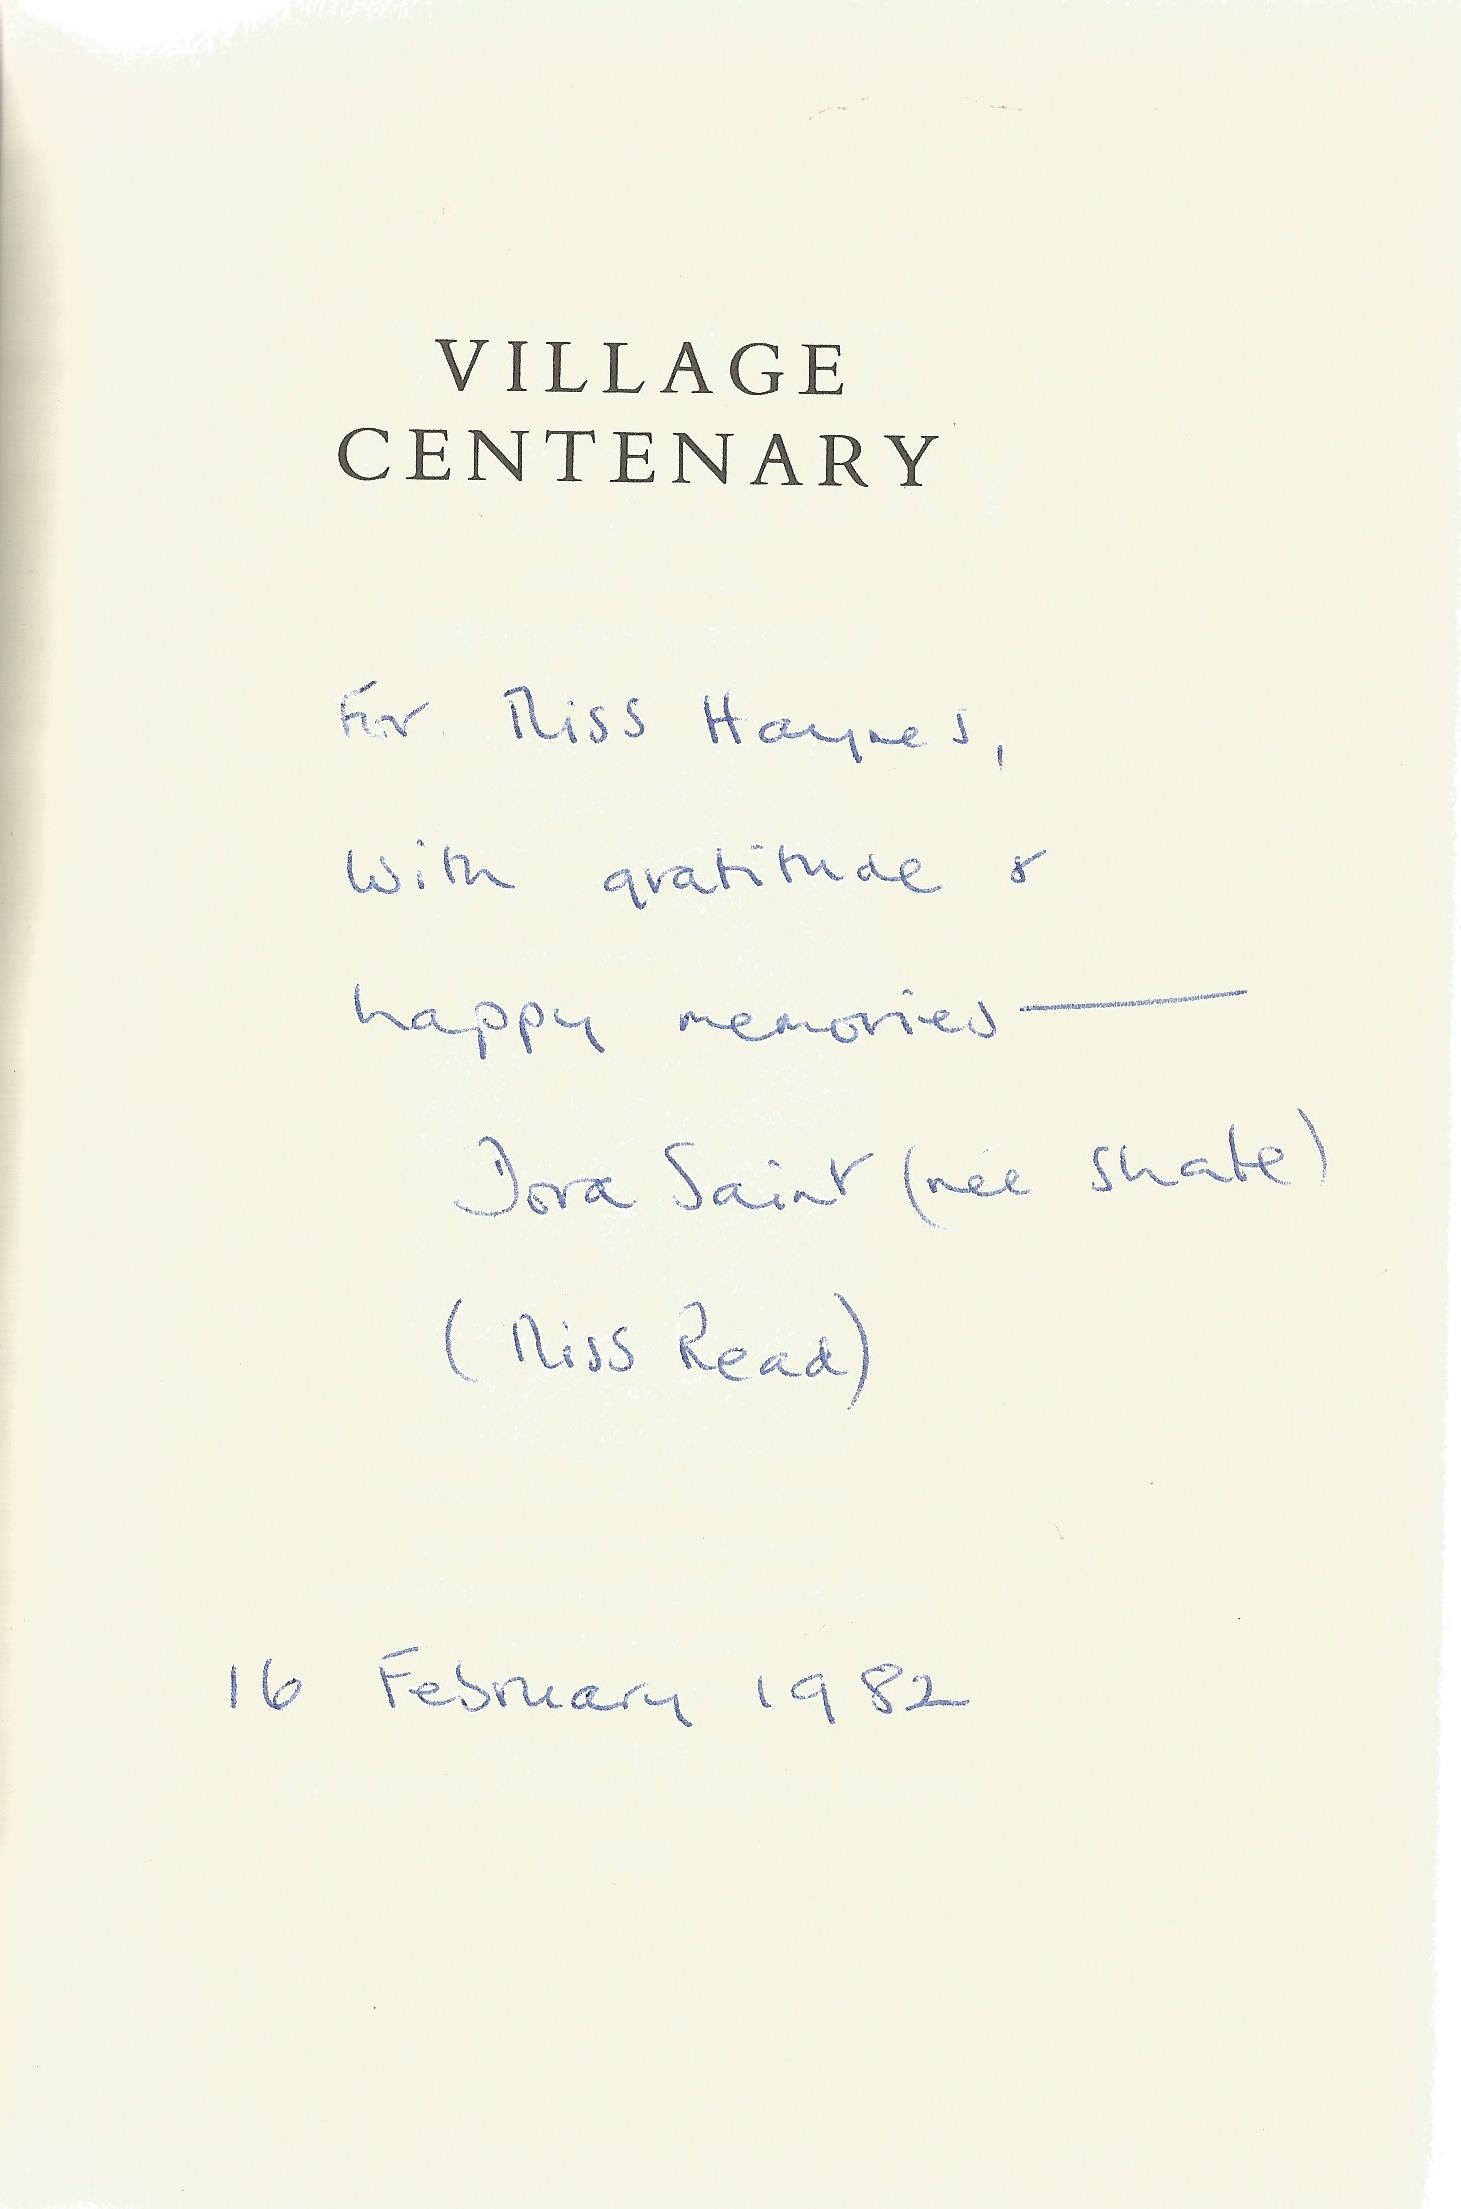 VILLAGE
CENTENARY
For Miss Haynes,
With gratitude &
happy memories —
Dora Saint (née Shafe)
(Miss Read)
16 February 1982